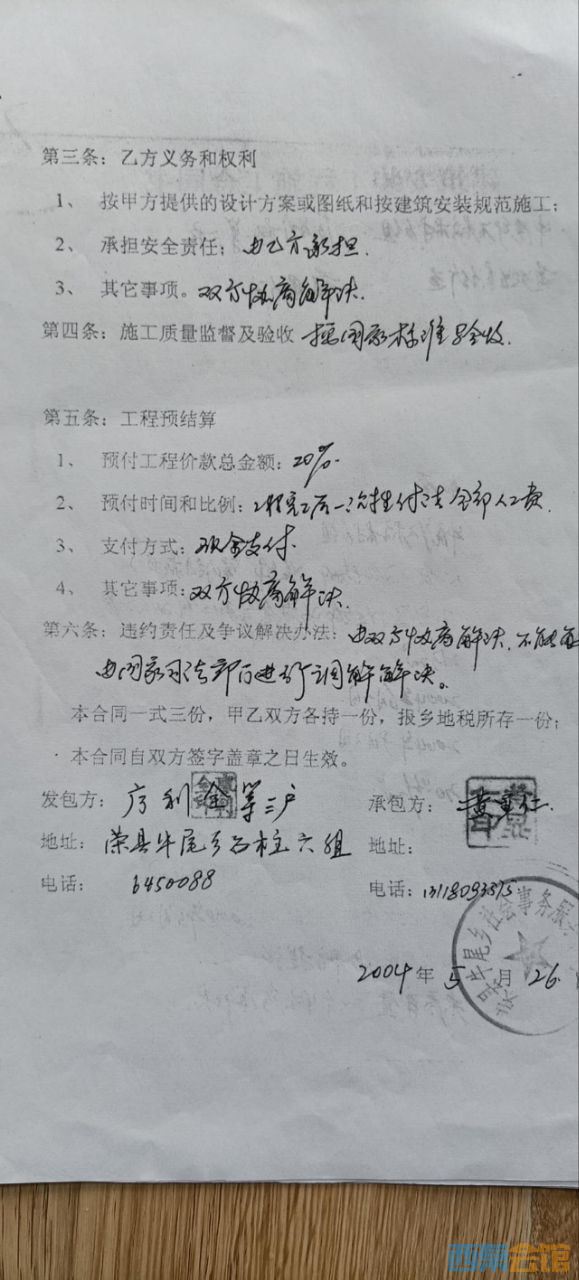 第三条：乙方义务和权利
1、 按甲方提供的设计方案或图纸和按建筑安装规范施工；
2、 承担安全责任：由乙方承担.
3、 其它事项。双方协商解决.
第四条：施工质量监督及验收 按国家标准验收.
第五条：工程预结算
1、 预付工程价款总金额：20%.
2、 预付时间和比例：工程完工后一次性付清全部人工费.
3、 支付方式：现金支付.
4、 其它事项：双方协商解决.
第六条：违约责任及争议解决办法：由双方协商解决.不能
由国家司法部门进行调解解决。
本合同一式三份，甲乙双方各持一份，报乡地税所存一份；
本合同自双方签字盖章之日生效。
发包方： 利金等三户 承包方：
地址：荣县牛尾乡石柱六组 地址：
电话： 6450088 电话：
牛尾乡社会事务服
2004 年 5 月 26
西祠会馆